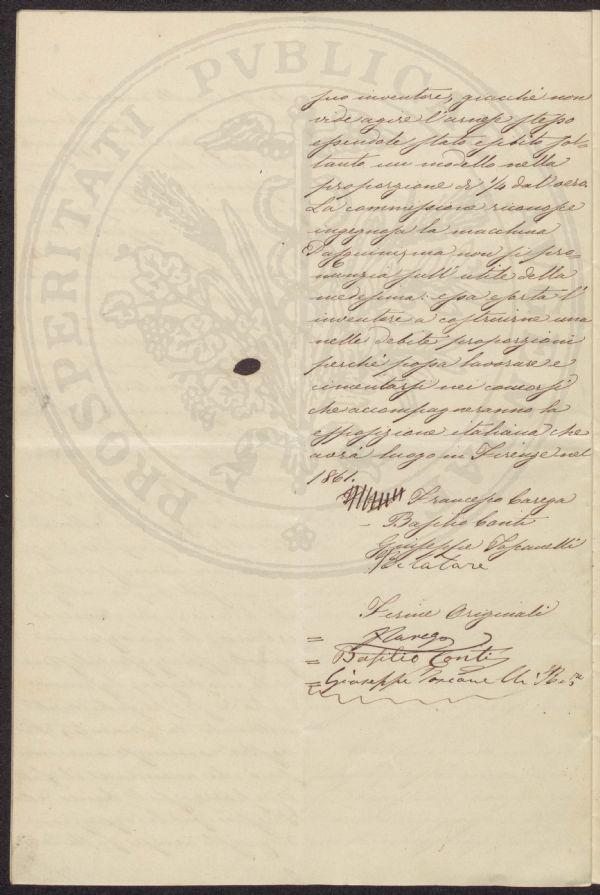 PROSPERITATI PVBLIC
suo inventore, giacchè non
vide agire l'arnese stesso
essendole stato esibito sol-
tanto un modello nella
proporzione di 1/4 dal vero.
La commissione riconosce
ingegnosa la macchina
ma non si pro-
nunzia sull' utile della
medesima: essa esorta l'
inventore a costruirne una
nelle debite proporzioni
perché possa lavorare e
cimentarsi nei concorsi
che accompagneranno la
esposizione italiana che
avrà luogo in Firenze nel
1861.
Francesco Carega
- Basilio Conti
Giuseppe Toscanelli
Relatore
Firme Originali
= Carega
= Basilio Conti
= Giuseppe Toscanelli